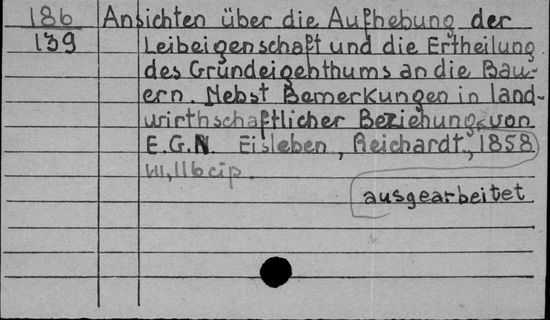 186 Ansichten über die Aufhebung der
139 Leibeigenschaft und die Ertheilung
des Grundeigenthums an die Bau-
ern. Nebst Bemerkungen in land-
wirthschaftlicher Beziehung von
E.G.N. Eisleben, Reichardt, 1858
VII, 116
ausgearbeitet